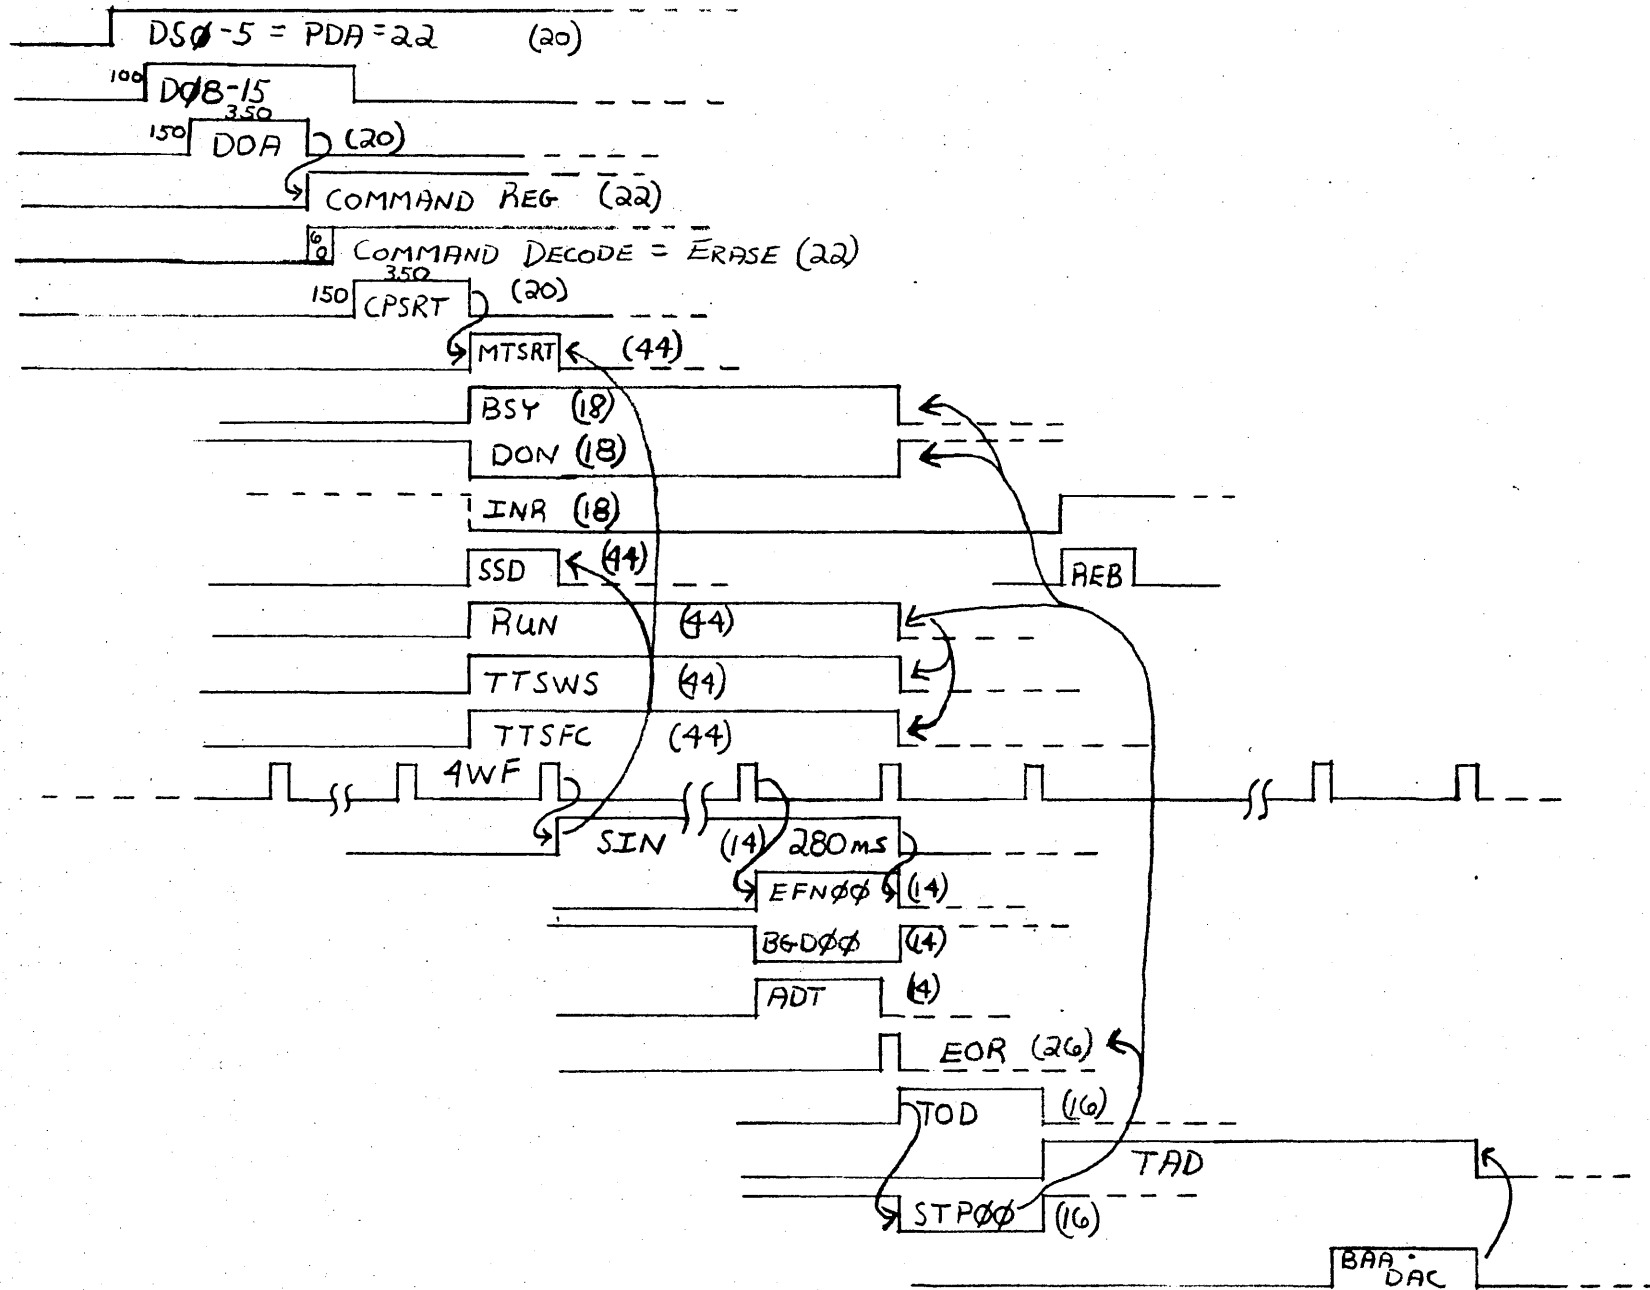 DSØ-5 = PDA=22 (20)
100 DØ8-15
150 350 DOA (20)
COMMAND REG (22)
60 COMMAND DECODE = ERASE (22)
150 350 CPSRT (20)
MTSRT (44)
BSY (18)
DON (18)
INR (18)
SSD (44) REB
RUN (44)
TTSWS (44)
TTSFC (44)
4WF
SIN (14) 280ms
EFNØØ (14)
BGDØØ (14)
ADT (4)
EOR (26)
TOD (16)
TAD
STPØØ (16)
BAA · DAC